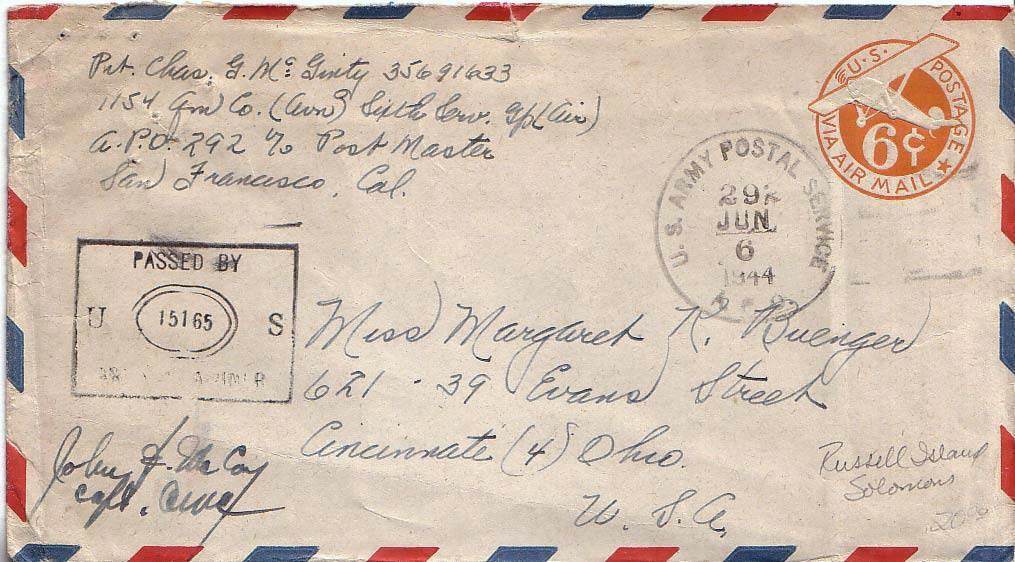 Pvt. Chas. G. McGinty 35691633
1154 Qm Co. (Avn) Sixth Serv. Gp (Air)
A.P.O. 292 c/o Post Master
San Francisco, Cal.
U.S. POSTAGE
6¢
VIA AIR MAIL
U.S. ARMY POSTAL SERVICE
JUN
6
1944
PASSED BY
U 15165 S
Miss Margaret R. Buenger
621-39 Evans Street
Cincinnati (4) Ohio.
U.S.A.
John F. McCoy
Capt.
Russell Island
Solomons